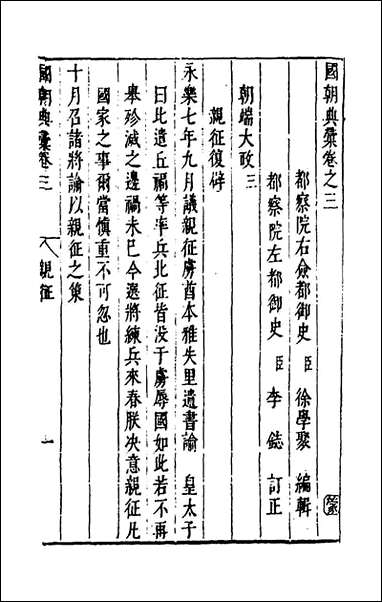 國朝典彙卷之三
都察院右僉都御史 臣 徐學聚 編輯
都察院左都御史 臣 李 鋕 訂正
朝端大政三
親征復辟
永樂七年九月議親征虜酋本雅失里遺書諭 皇太子
曰此遣丘福等率兵北征皆没于虜辱國如此若不再
舉殄滅之邊禍未已今選將練兵來春朕决意親征凡
國家之事爾當慎重不可忽也
十月召諸將諭以親征之策
國朝典彙卷三 親征 一